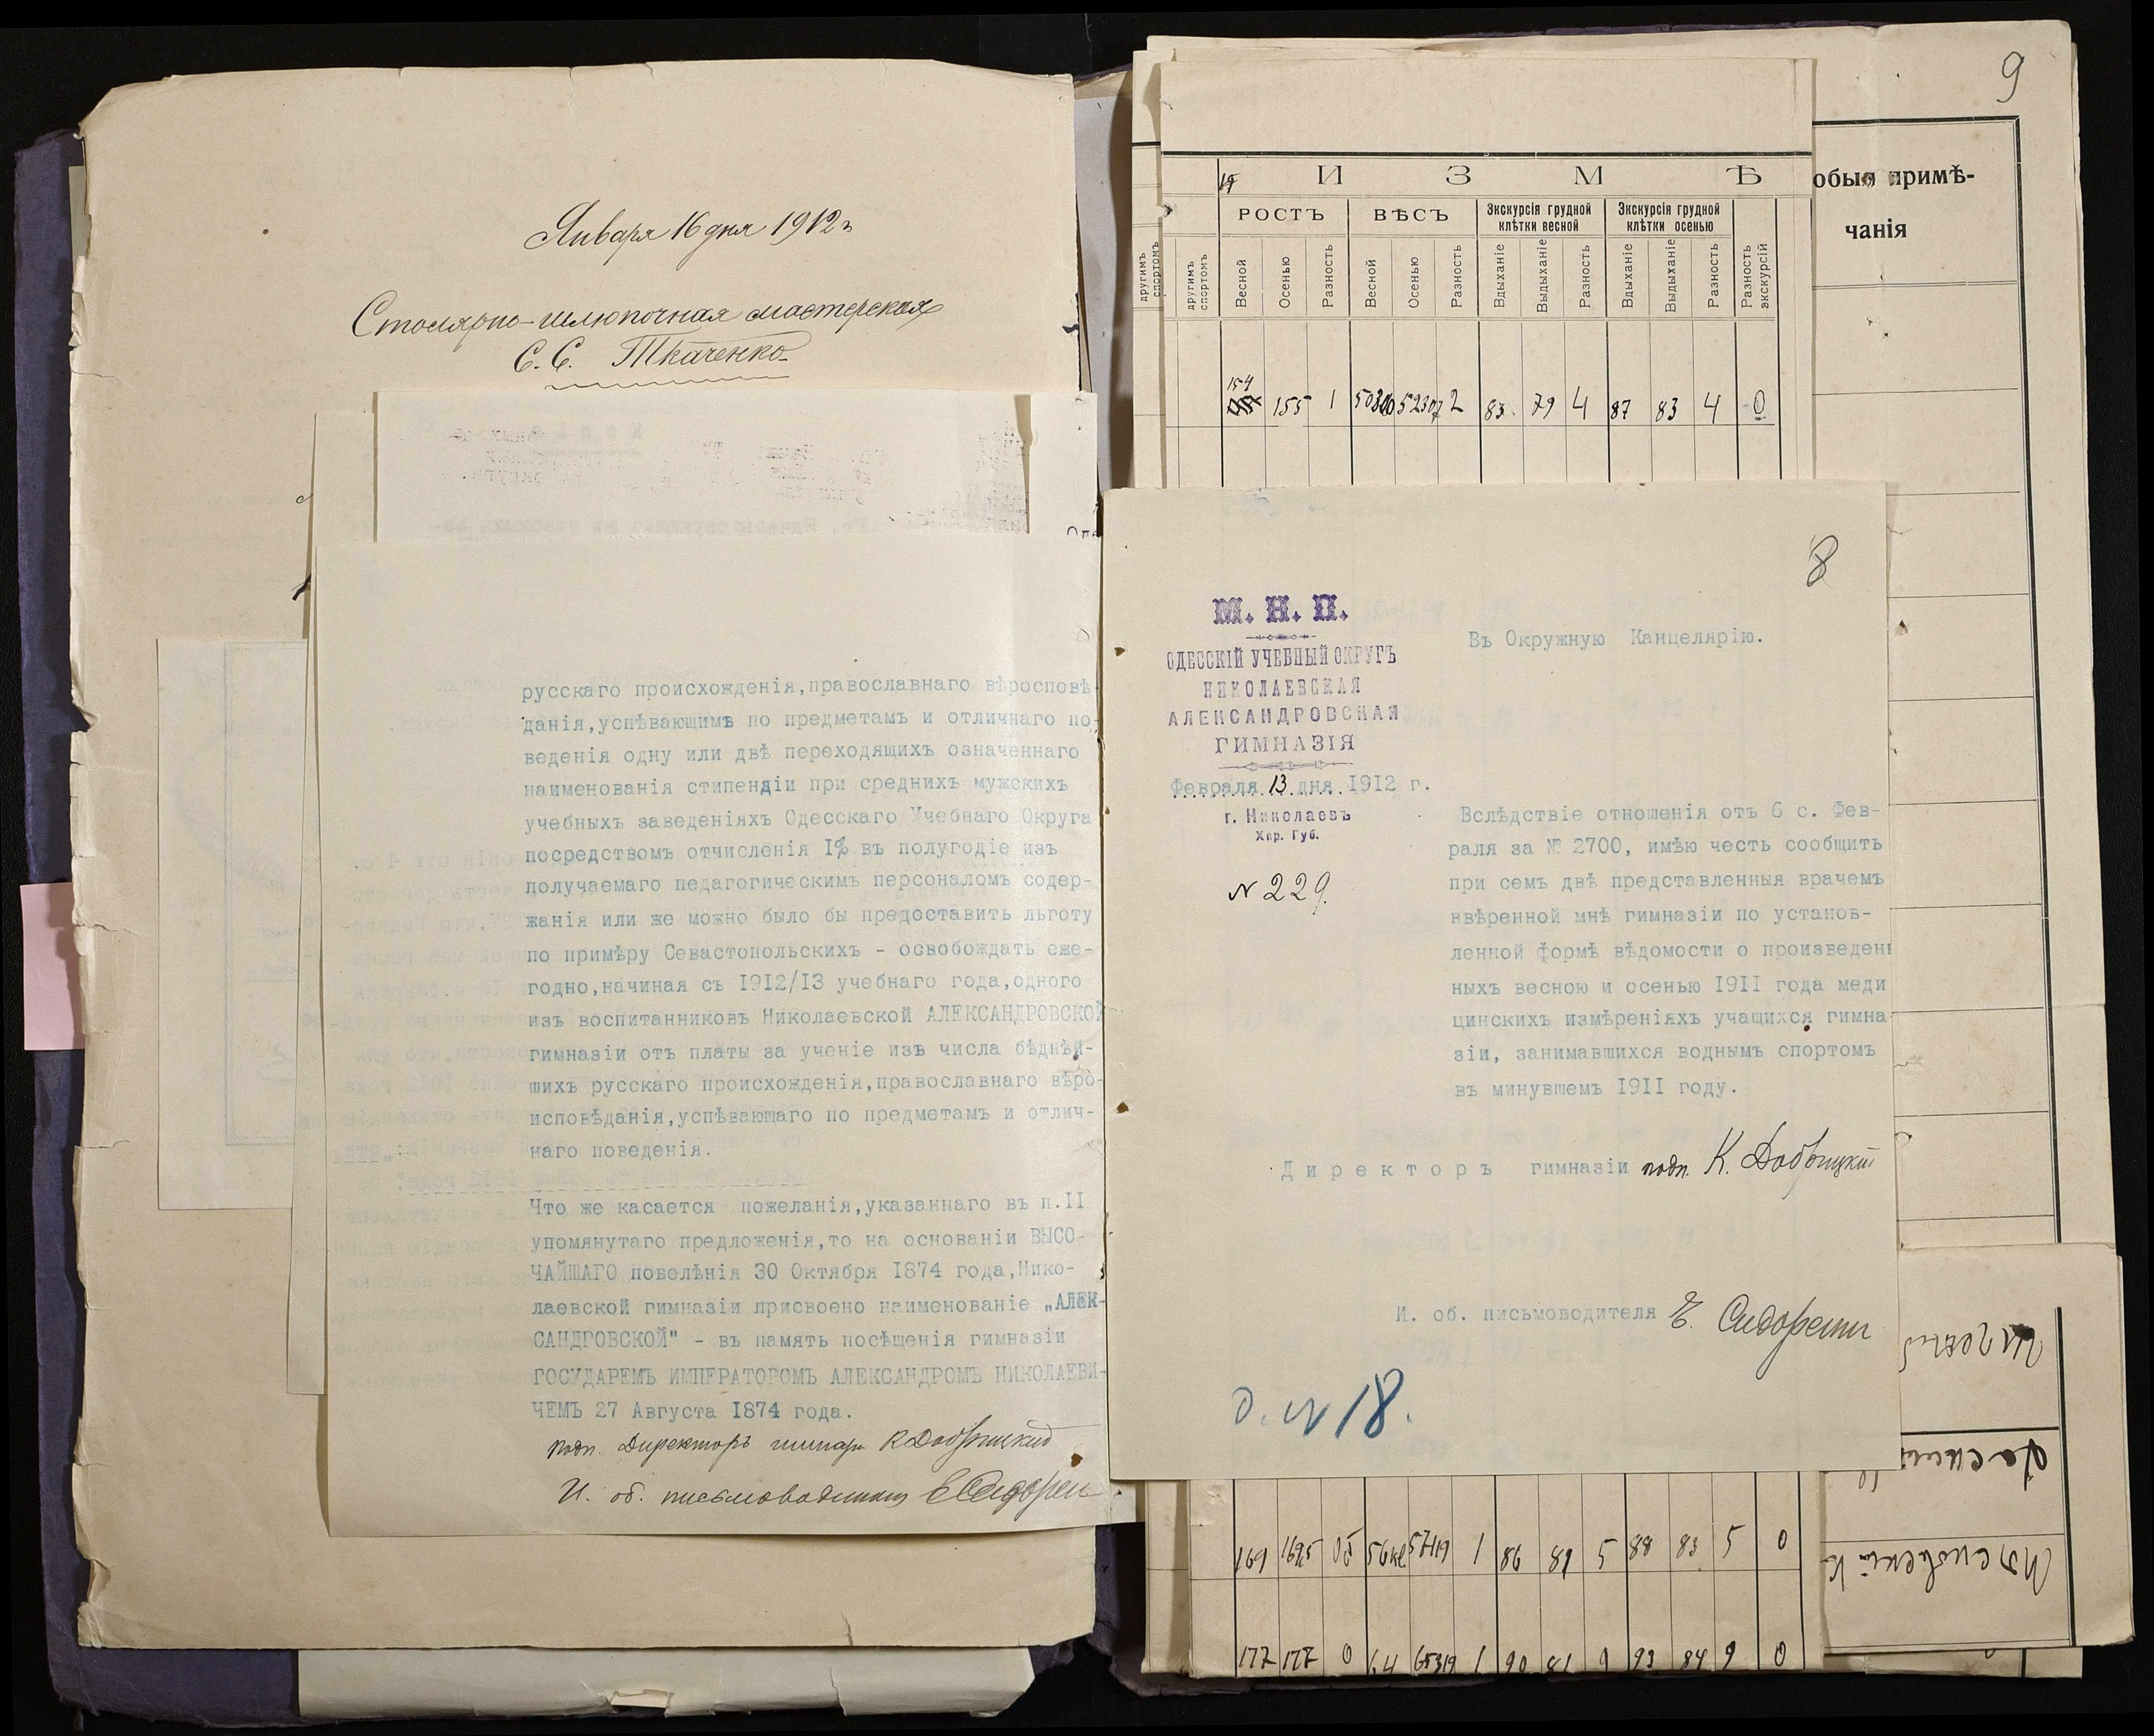 Января 16 дня 1912 г
Столярно-шлюпочная мастерская
С. С. Ткаченко
русскаго происхожденія,православнаго вѣросповѣ-
данія,успѣвающимъ по предметамъ и отличнаго по-
веденія одну или двѣ переходящихъ означеннаго
наименованія стипендіи при среднихъ мужскихъ
учебныхъ заведеніяхъ Одесскаго Учебнаго Округа
посредствомъ отчисленія I% въ полугодіе изъ
получаемаго педагогическимъ персоналомъ содер-
жанія или же можно было бы предоставить льготу
по примѣру Севастопольскихъ - освобождать еже-
годно,начиная съ I9I2/I3 учебнаго года,одного
изъ воспитанниковъ Николаевской АЛЕКСАНДРОВСКОЙ
гимназіи отъ платы за ученіе изъ числа бѣднѣй-
шихъ русскаго происхожденія,православнаго вѣро-
исповѣданія,успѣвающаго по предметамъ и отлич-
наго поведенія.
Что же касается пожеланія,указаннаго въ п.II
упомянутаго предложенія,то на основаніи ВЫСО-
ЧАЙШАГО повелѣнія 30 Октября I874 года,Нико-
лаевской гимназіи присвоено наименованіе „АЛЕК-
САНДРОВСКОЙ" - въ память посѣщенія гимназіи
ГОСУДАРЕМЪ ИМПЕРАТОРОМЪ АЛЕКСАНДРОМЪ НИКОЛАЕВИ-
ЧЕМЪ 27 Августа I874 года.
подп. Директоръ гимназ К Добрицкій
И. об. письмоводителя
9
обыя примѣ-
чанія
И З М Ѣ
РОСТЪ ВѢСЪ Экскурсія грудной клѣтки весной Экскурсія грудной клѣтки осенью
другимъ спортомъ
другимъ спортомъ Весной Осенью Разность Весной Осенью Разность Вдыханіе Выдыханіе Разность Вдыханіе Выдыханіе Разность Разность экскурсій
154
155 1 2 83 79 4 87 83 4 0
8
М. Н. П.
ОДЕССКІЙ УЧЕБНЫЙ ОКРУГЪ
НИКОЛАЕВСКАЯ
АЛЕКСАНДРОВСКАЯ
ГИМНАЗІЯ
Февраля 13 дня 1912 г.
г. Николаевъ
Хер. Губ.
№ 229.
Въ Окружную Канцелярію.
Вслѣдствіе отношенія отъ 6 с. Фев-
раля за № 2700, имѣю честь сообщить
при семъ двѣ представленныя врачемъ
ввѣренной мнѣ гимназіи по установ-
ленной формѣ вѣдомости о произведен
ныхъ весною и осенью I9II года меди
цинскихъ измѣреніяхъ учащихся гимна-
зіи, занимавшихся воднымъ спортомъ
въ минувшемъ I9II году.
Директоръ гимназіи подп. К. Добрицкій
И. об. письмоводителя
д. № 18.
169 1 86 81 5 88 83 5 0
177 177 0 64 1 90 81 9 93 84 9 0